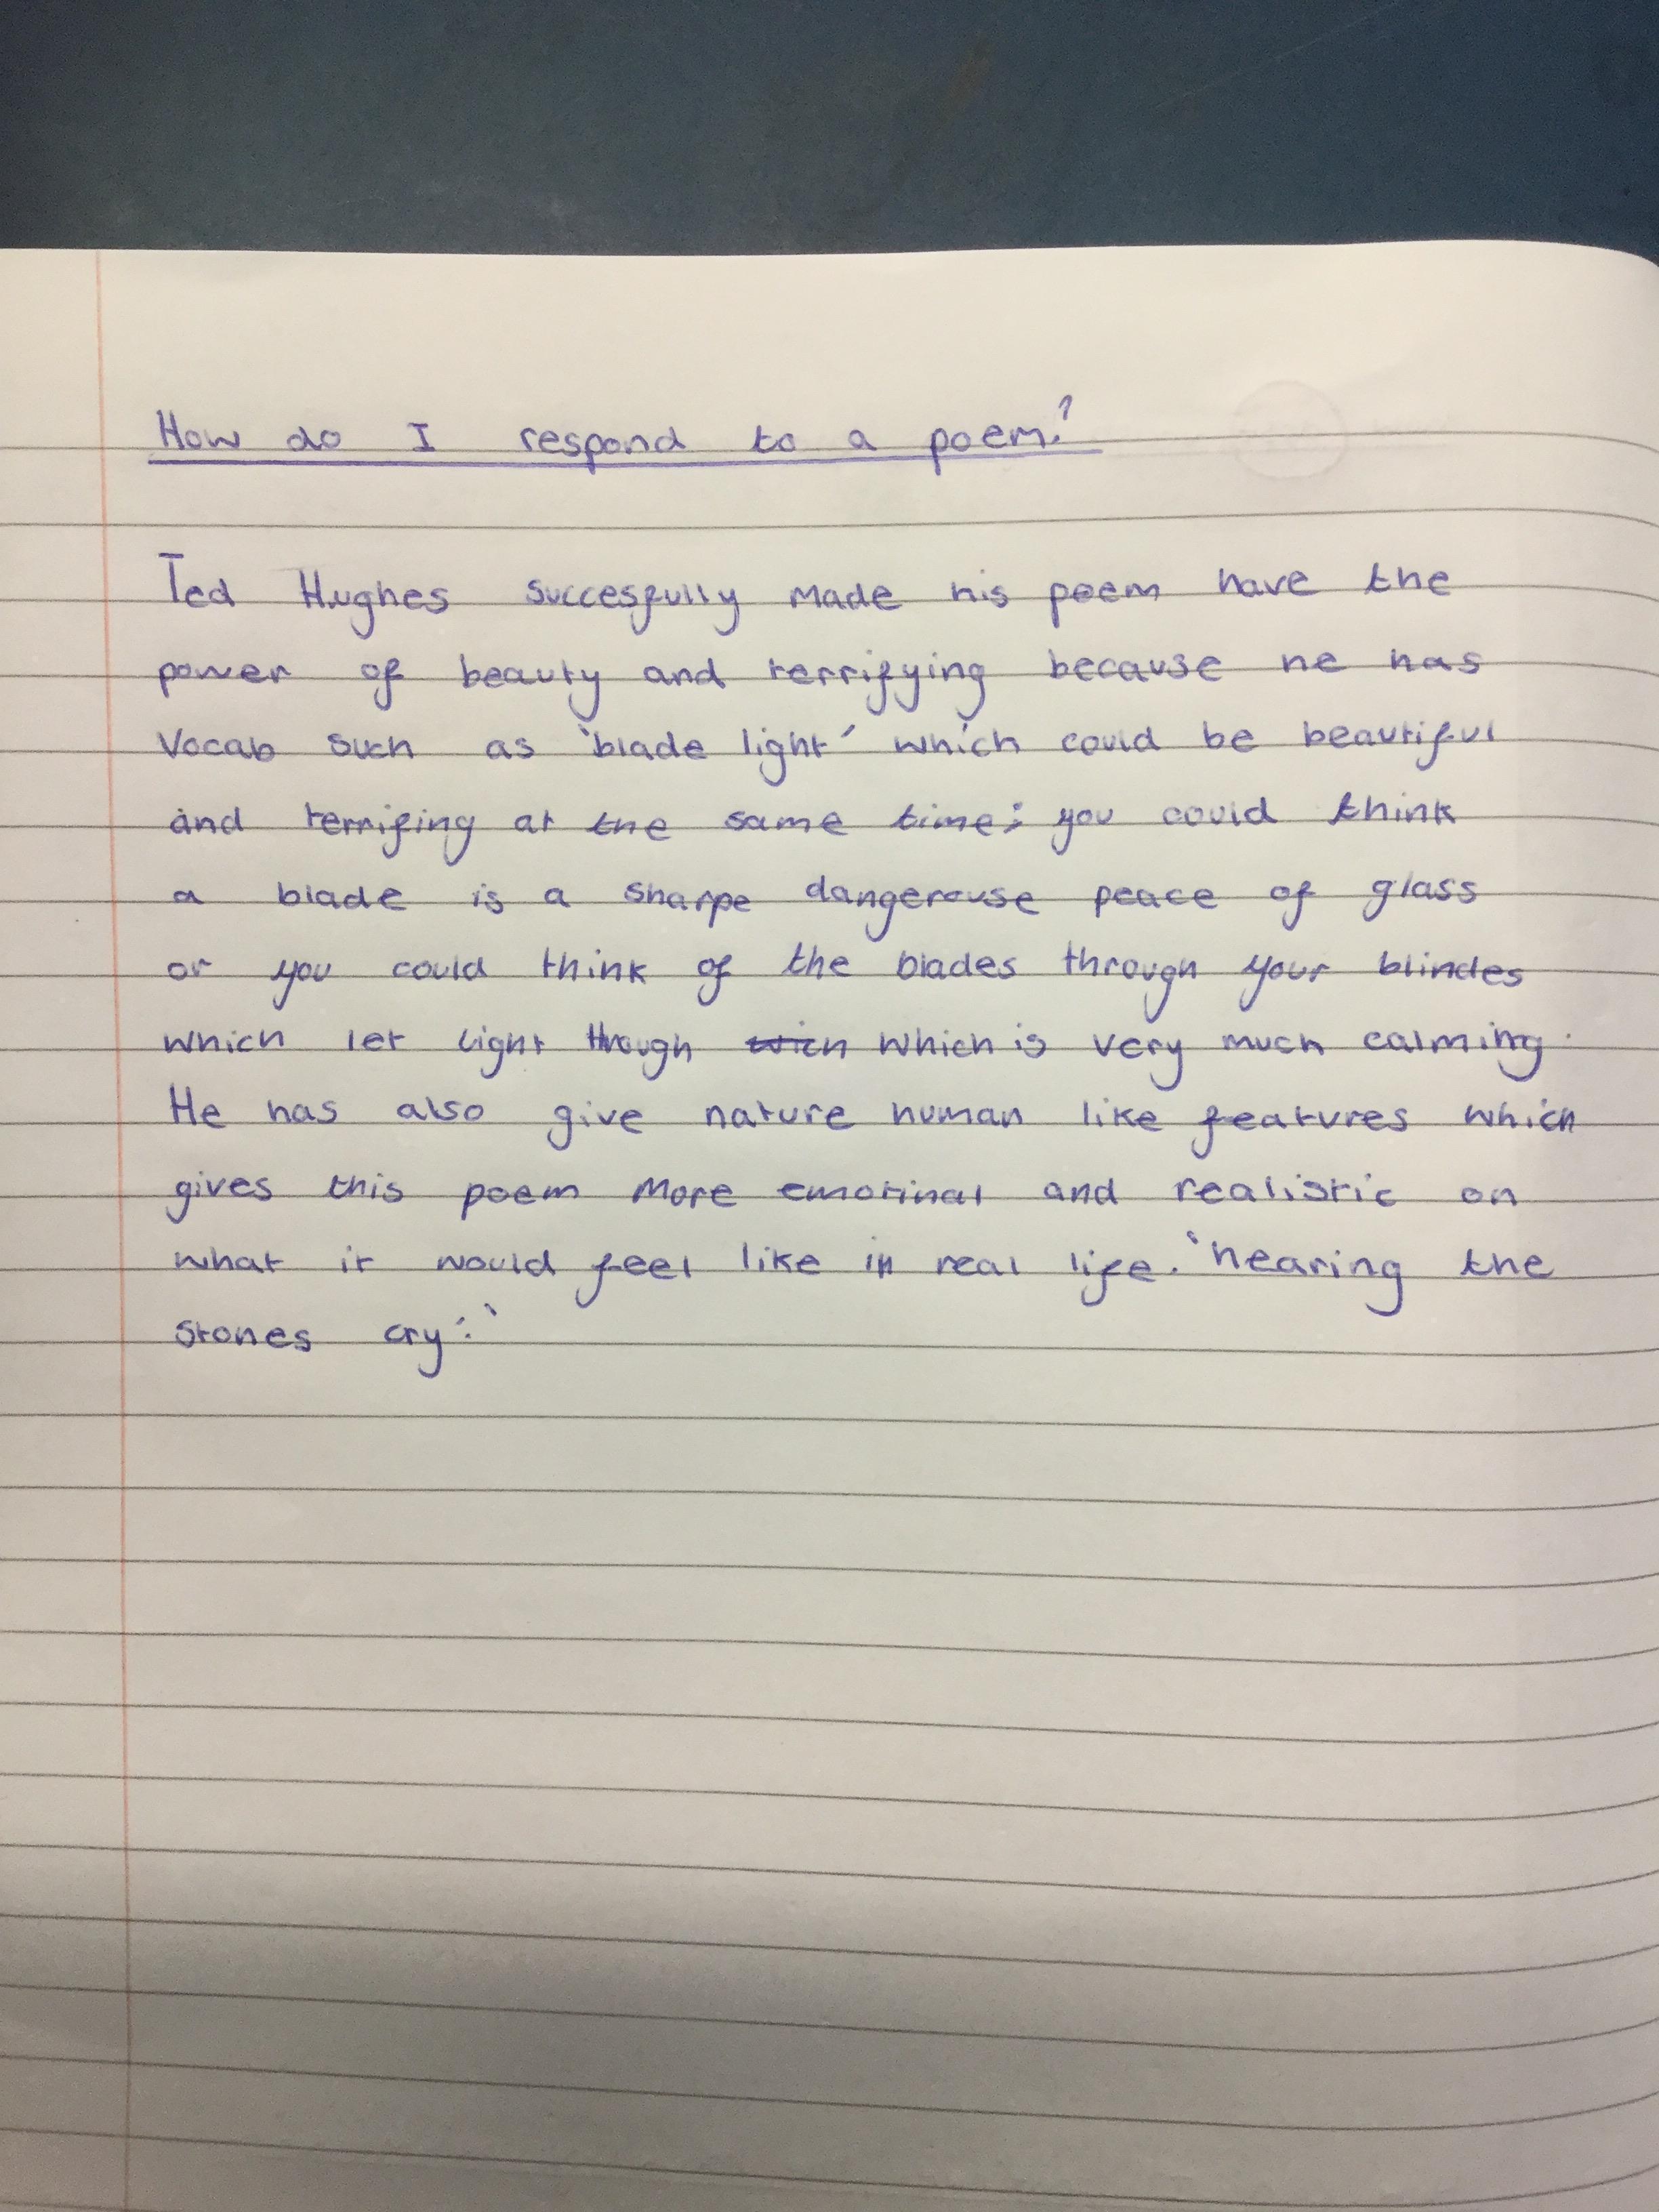 How do I respond to a poem?
Ted Hughes succesfully made his poem have the
power of beauty and terrifying because he has
vocab such as 'blade light' which could be beautiful
and terrifing at the same time; you could think
a blade is a sharpe dangerouse peace of glass
or you could think of the blades through your blindes
which let light though wich which is very much calming.
He has also give nature human like features which
gives this poem more emotinal and realistic on
what it would feel like in real life. 'hearing the
stones cry.'